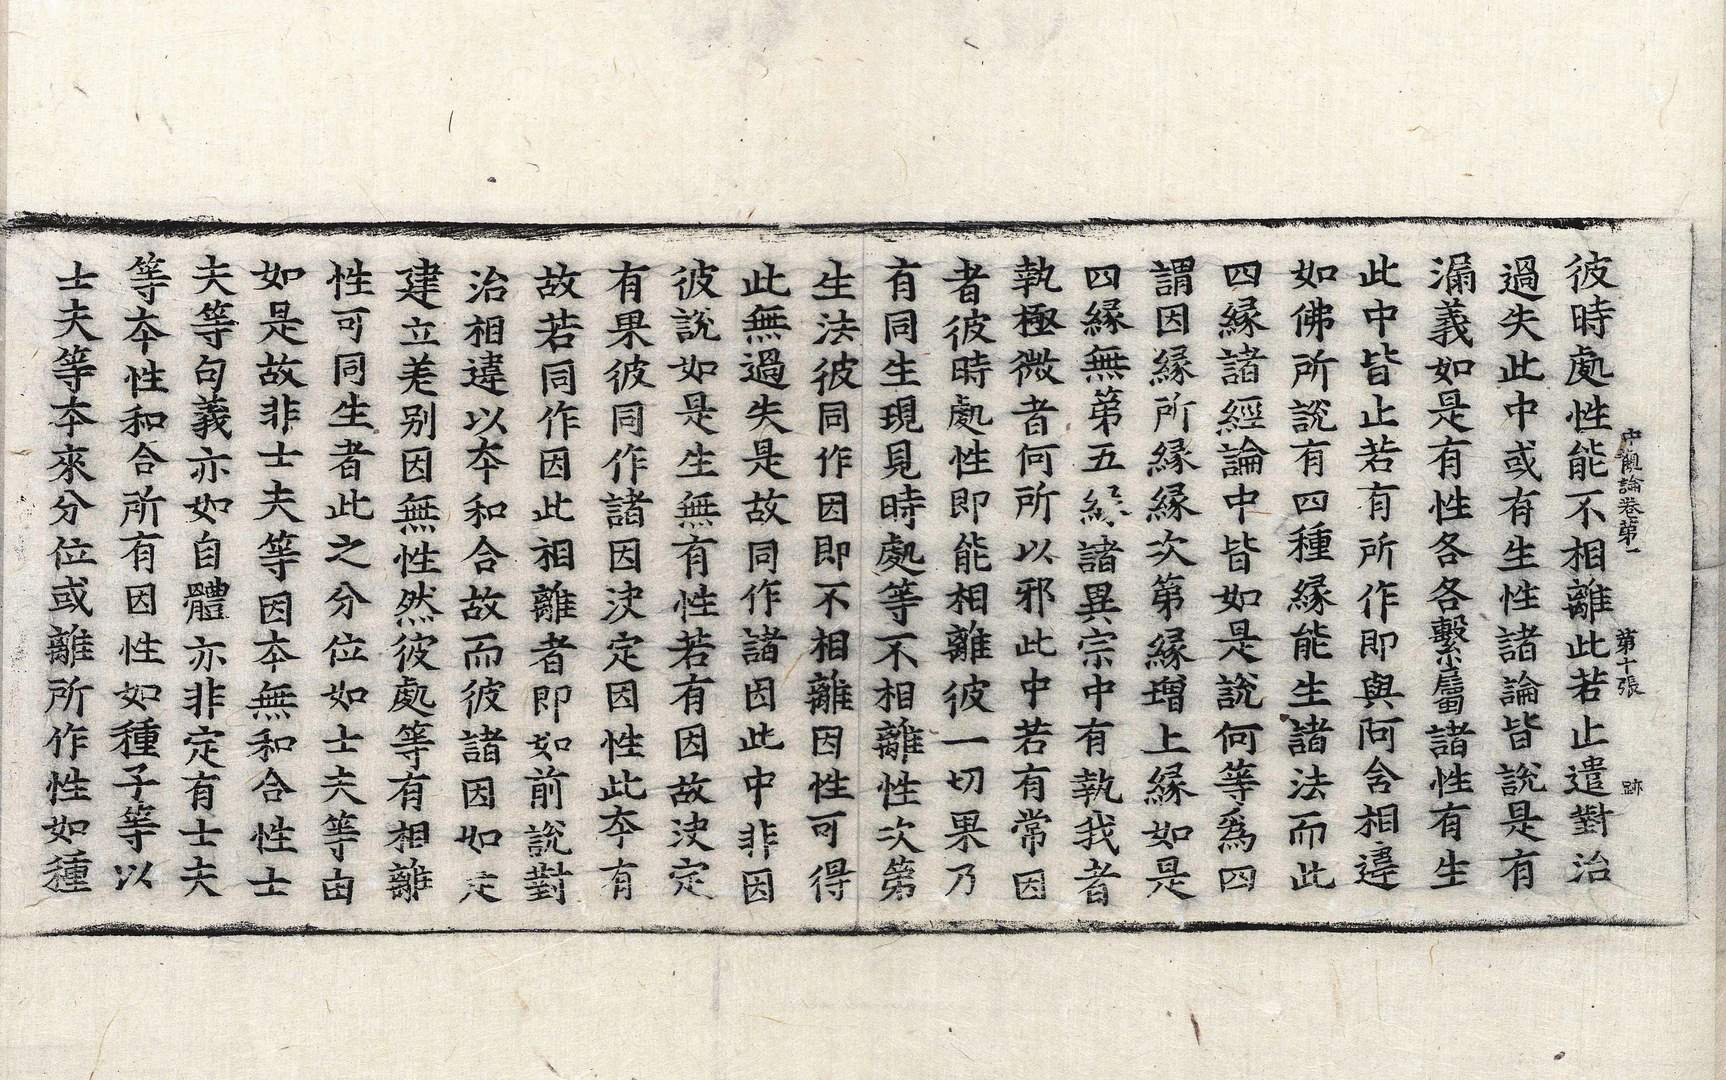 中觀論卷第一 第十張 跡
彼時處性能不相離此若止遣對治
過失此中或有生性諸論皆說是有
漏義如是有性各各繫屬諸性有生
此中皆止若有所作即與阿含相違
如佛所說有四種縁能生諸法而此
四縁諸經論中皆如是說何等爲四
謂因縁所縁縁次第縁增上縁如是
四縁無第五縁諸異宗中有執我者
執極微者何所以邪此中若有常因
者彼時處性即能相離彼一切果乃
有同生現見時處等不相離性次第
生法彼同作因即不相離因性可得
此無過失是故同作諸因此中非因
彼說如是生無有性若有因故決定
有果彼同作諸因決定因性此本有
故若同作因此相離者即如前說對
治相違以本和合故而彼諸因如定
建立差別因無性然彼處等有相離
性可同生者此之分位如士夫等由
如是故非士夫等因本無和合性士
夫等句義亦如自體亦非定有士夫
等本性和合所有因性如種子等以
士夫等本來分位或離所作性如種